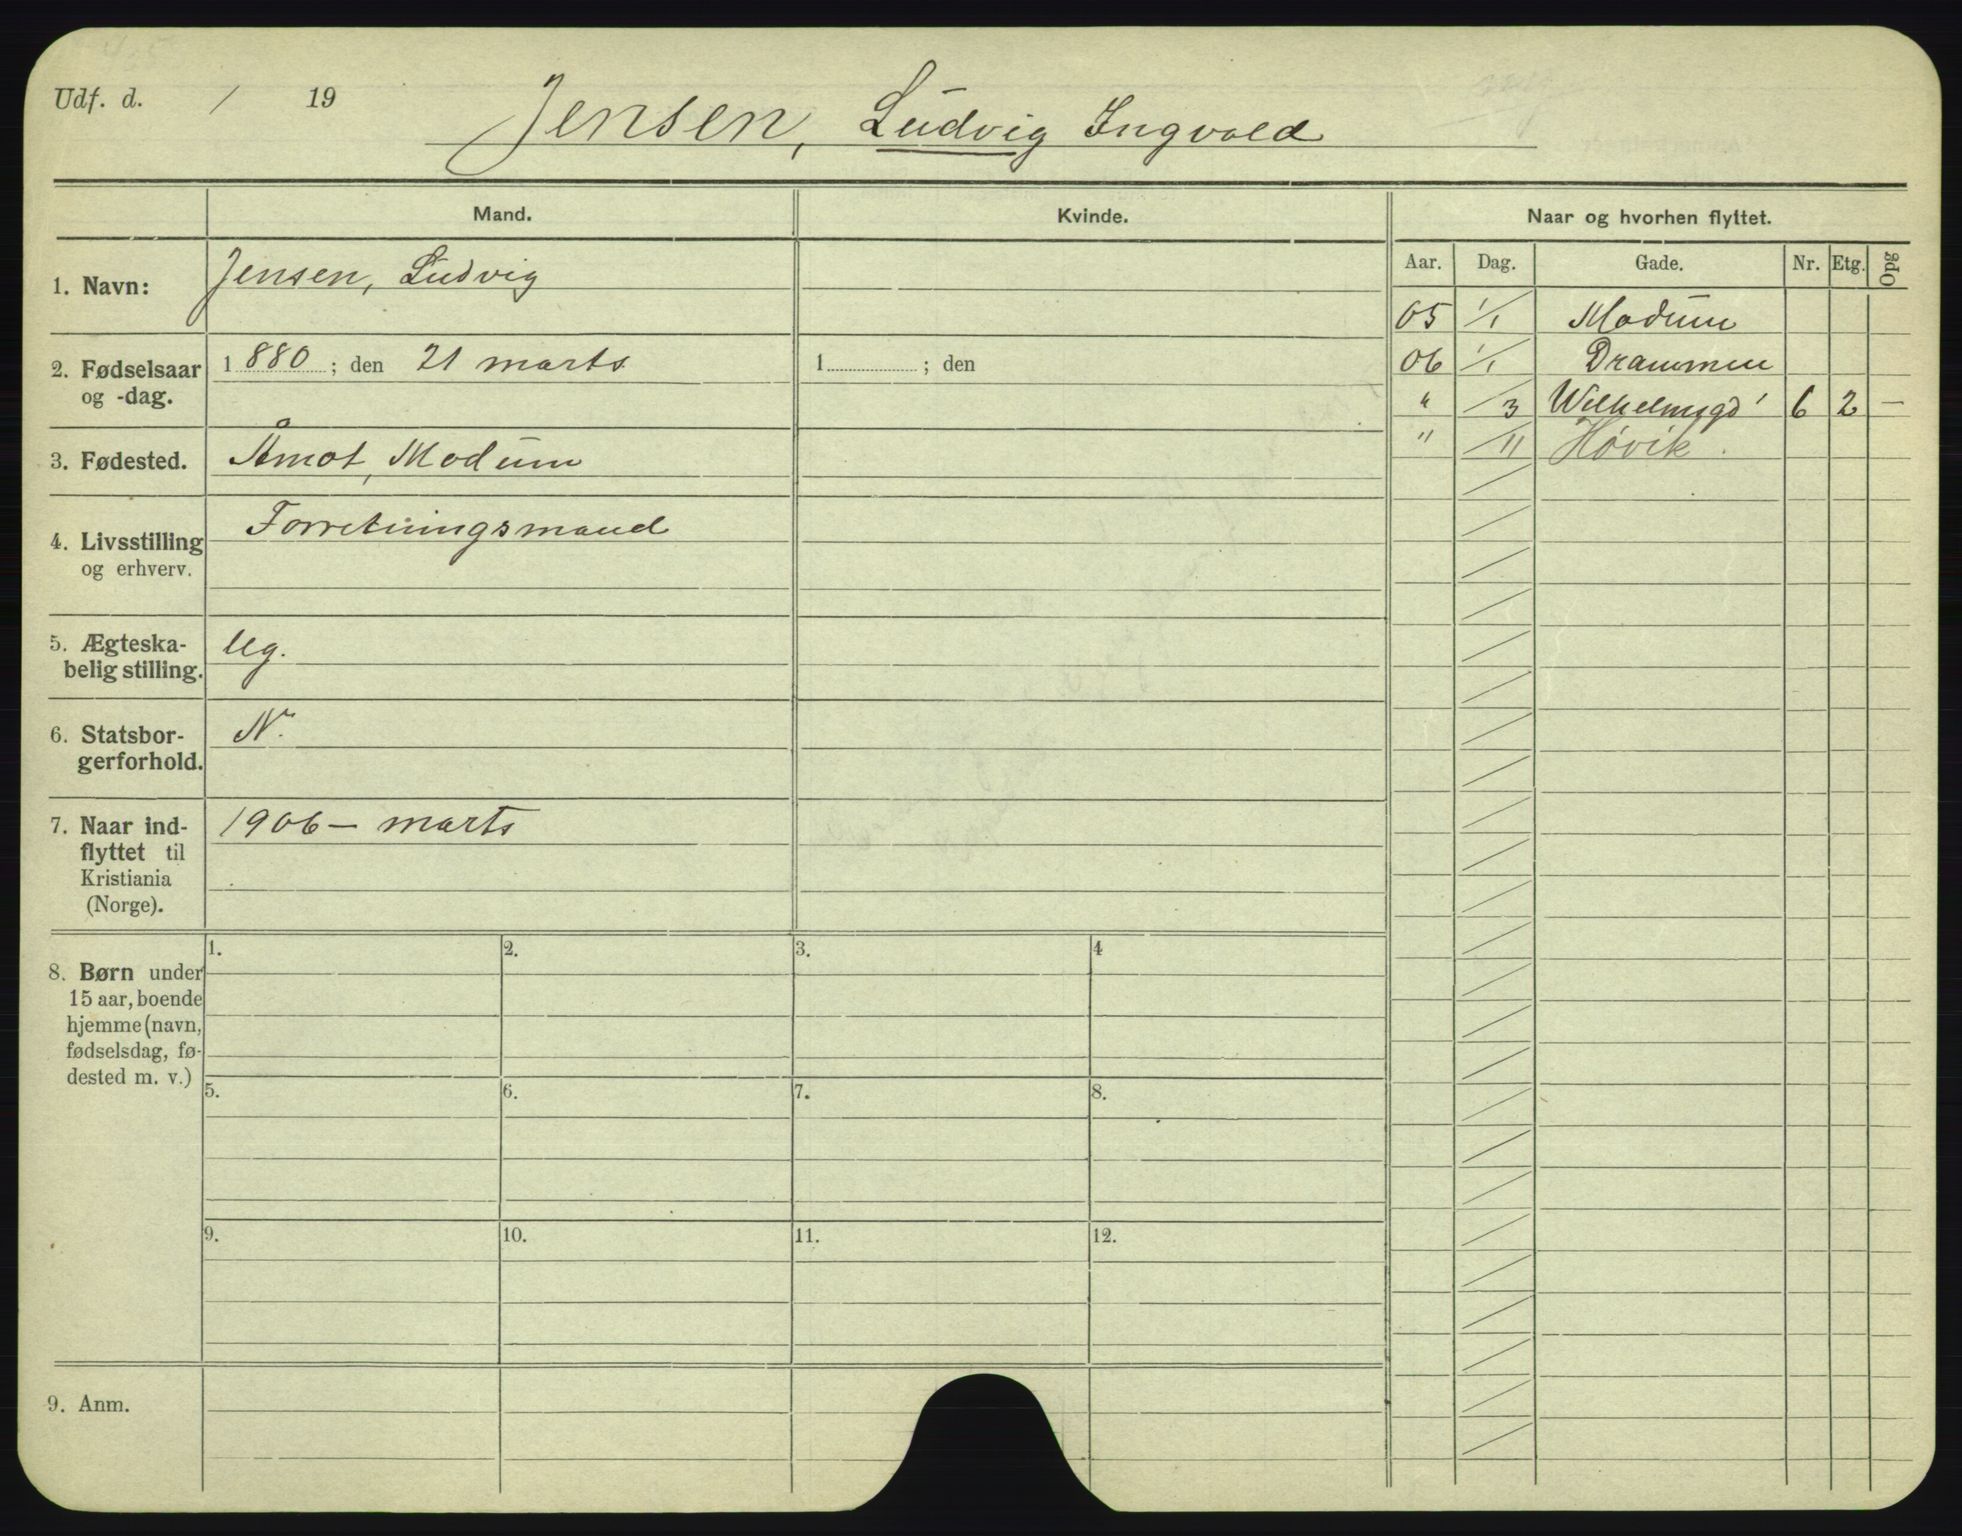 Udf. d. / 19
Jensen, Ludvig Ingvald
Mand.
Kvinde.
Naar og hvorhen flyttet.
Aar. Dag. Gade. Nr. Etg. Opg
1. Navn: Jensen, Ludvig
05 1/1 Modum
2. Fødselsaar og -dag. 1880; den 21 marts
1 ; den
06 1/1 Drammen
" /3 Wilhelmsgd 6 2 —
" /11 Høvik.
3. Fødested. Åmot, Modum
4. Livsstilling og erhverv. Forretningsmand
5. Ægteska-
belig stilling. Ug.
6. Statsbor-
gerforhold. N.
7. Naar ind-
flyttet til
Kristiania
(Norge).
1906 – marts
8. Børn under
15 aar, boende
hjemme (navn,
fødselsdag, fø-
dested m. v.)
1. 2. 3. 4
5. 6. 7. 8.
9. 10. 11. 12.
9. Anm.